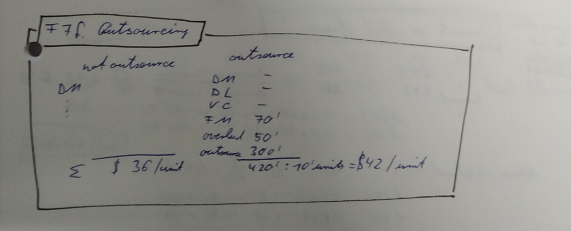 F7f. Outsourcing
not outsource outsource
DM DM -
DL -
VC -
FM 70'
overhead 50'
outsource 300'
Σ $ 36/unit 420' : 10' units = $42/unit